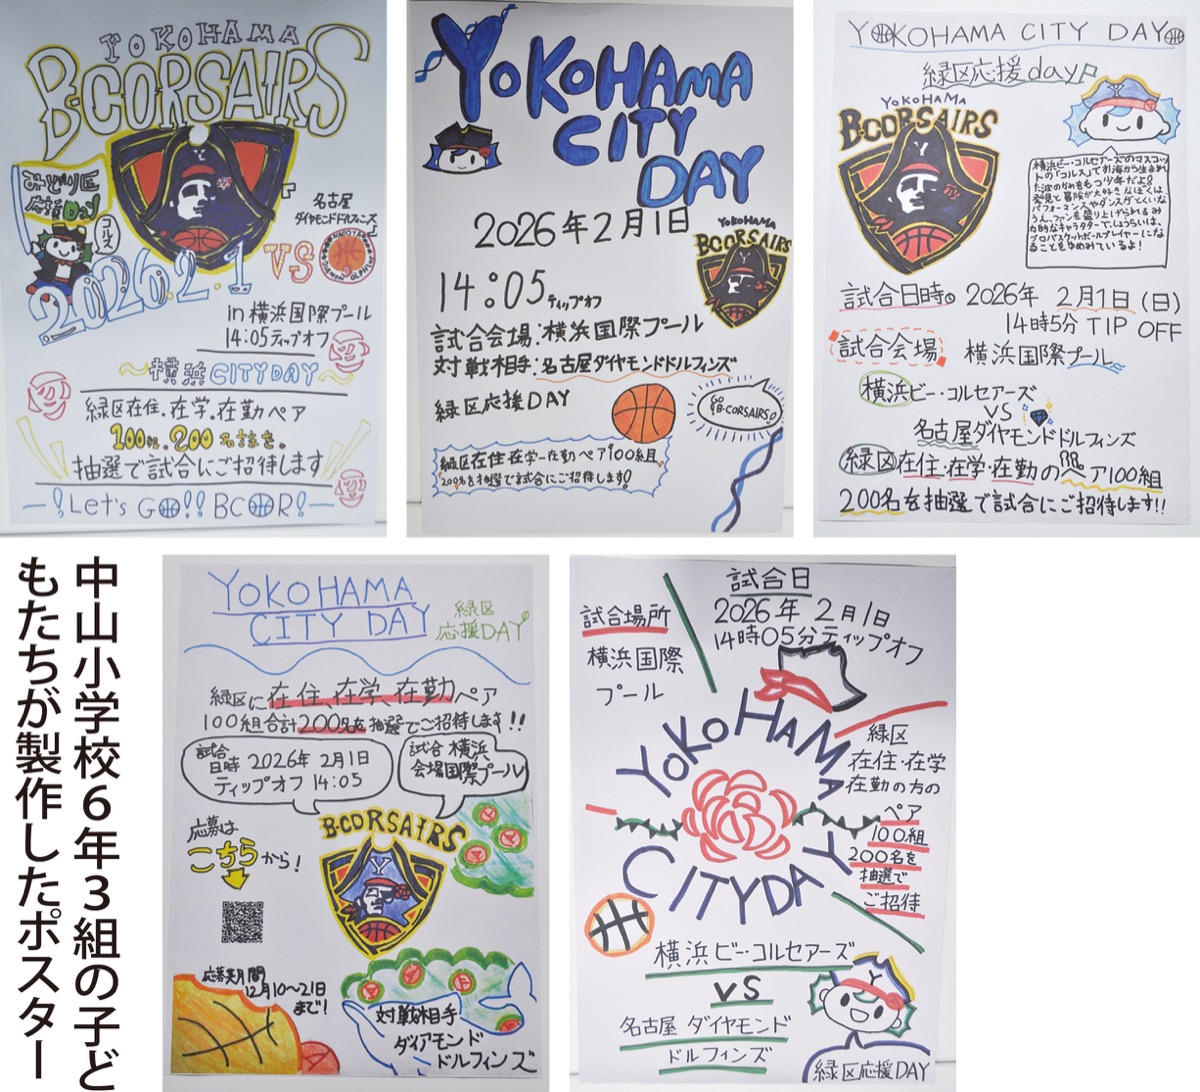 YOKOHAMA
B-CORSAIRS
みどり区
応援DAY
コルス
名古屋
ダイヤモンドドルフィンズ
VS
2026.2.1
in 横浜国際プール
14:05ティップオフ
〜横浜CITYDAY〜
緑区在住.在学.在勤ペア
100組.200名様を.
抽選で試合にご招待します
ー!Let's GO!! BCOR!ー
YOKOHAMA
CITY
DAY
2026年2月1日
14:05ティップオフ
試合会場:横浜国際プール
対戦相手:名古屋ダイヤモンドドルフィンズ
緑区応援DAY
YOKOHAMA
B-CORSAIRS
GO
B-CORSAIRS!
緑区在住・在学・在勤ペア100組
200名を抽選で試合にご招待します!
YOKOHAMA CITY DAY
緑区応援day
YOKOHAMA
B-CORSAIRS
横浜ビー・コルセアーズのマスコッ
トの「コルス」です!海から生まれ
た波のかみをもつ少年だよ!
発見と冒険が大好きなぼくは、
パフォーマンスやダンスがとくい
試合日時。2026年 2月1日(日)
14時5分 TIP OFF
試合会場 横浜国際プール
横浜ビー・コルセアーズ
VS
名古屋ダイヤモンドドルフィンズ
緑区在住・在学・在勤のペア100組
200名を抽選で試合にご招待します!!
中山小学校6年3組の子ど
もたちが製作したポスター
YOKOHAMA
CITY DAY
緑区
応援DAY
緑区に在住、在学、在勤ペア
100組合計200名を抽選でご招待します!!
試合
日時 2026年2月1日
ティップオフ 14:05
試合 横浜
会場国際プール
応募は
こちらから!
B-CORSAIRS
応募期間
12月10〜21日
まで!
対戦相手
ダイアモンド
ドルフィンズ
試合日
2026年2月1日
14時05分ティップオフ
試合場所
横浜国際
プール
YOKOHAMA
CITYDAY
緑区
在住・在学
在勤の方の
ペア
100組
200名を
抽選で
ご招待
横浜ビー・コルセアーズ
VS
名古屋 ダイヤモンド
ドルフィンズ
緑区応援DAY